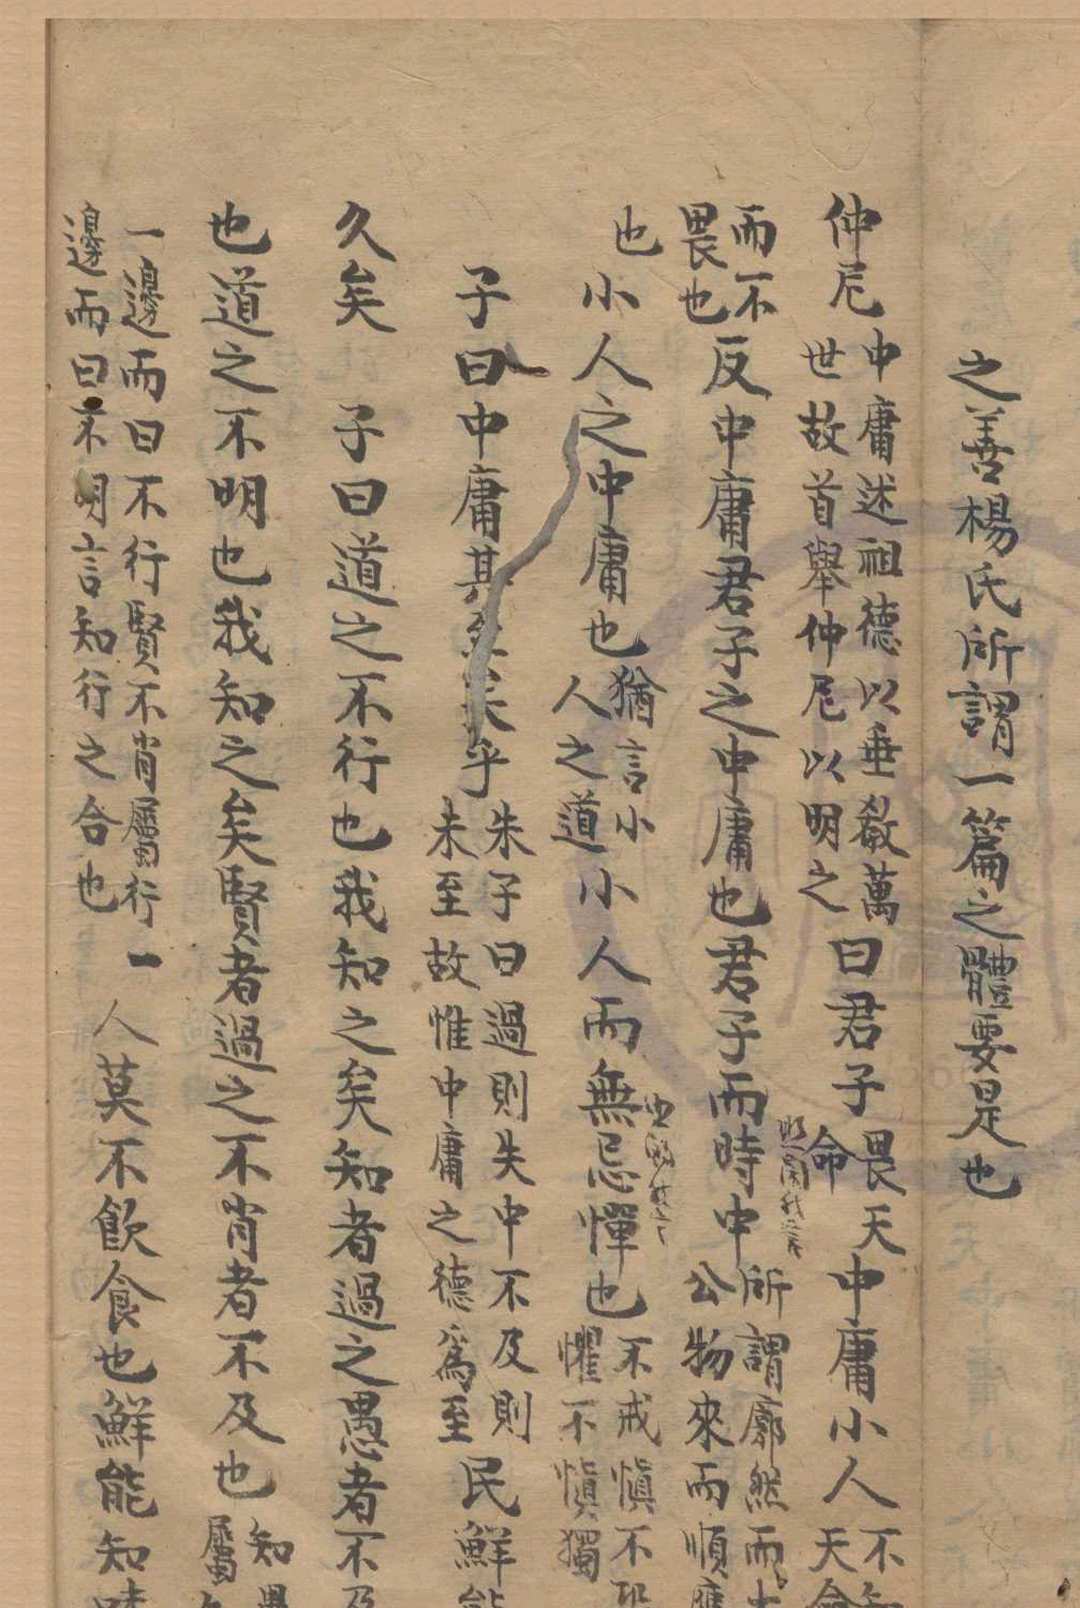 之善楊氏所謂一篇之體要是也
仲尼中庸述祖德以垂教萬世故首舉仲尼以明之曰君子畏天命中庸小人不知天命
而不畏也反中庸君子之中庸也君子而時中所謂廓然而大公物來而順應
也小人之中庸也猶言小人之道小人而無忌憚也不戒愼不恐懼不愼獨
子曰中庸其至矣乎朱子曰過則失中不及則未至故惟中庸之德爲至民鮮能
久矣 子曰道之不行也我知之矣知者過之愚者不及
也道之不明也我知之矣賢者過之不肖者不及也知愚屬
一邊而曰不行賢不肖屬行一邊而曰不明言知行之合也人莫不飮食也鮮能知味